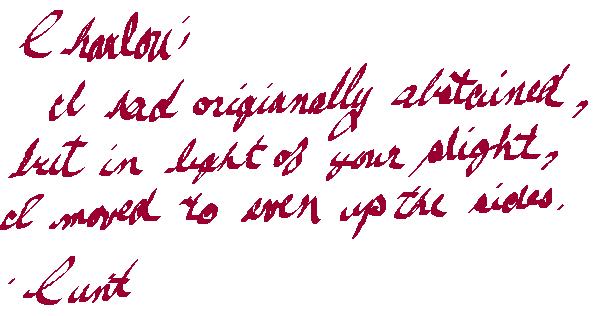 I had origianally abstained,
but in light of your plight,
I moved to even up the sides.